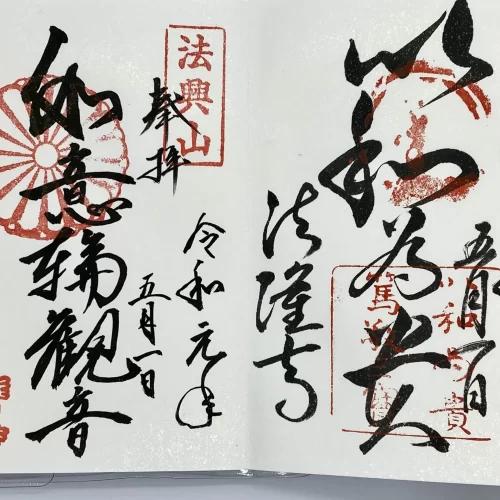 五月一日
以和為貴
法隆寺
以和為貴
篤
法興山
奉拝
令和元年
五月一日
如意輪観音